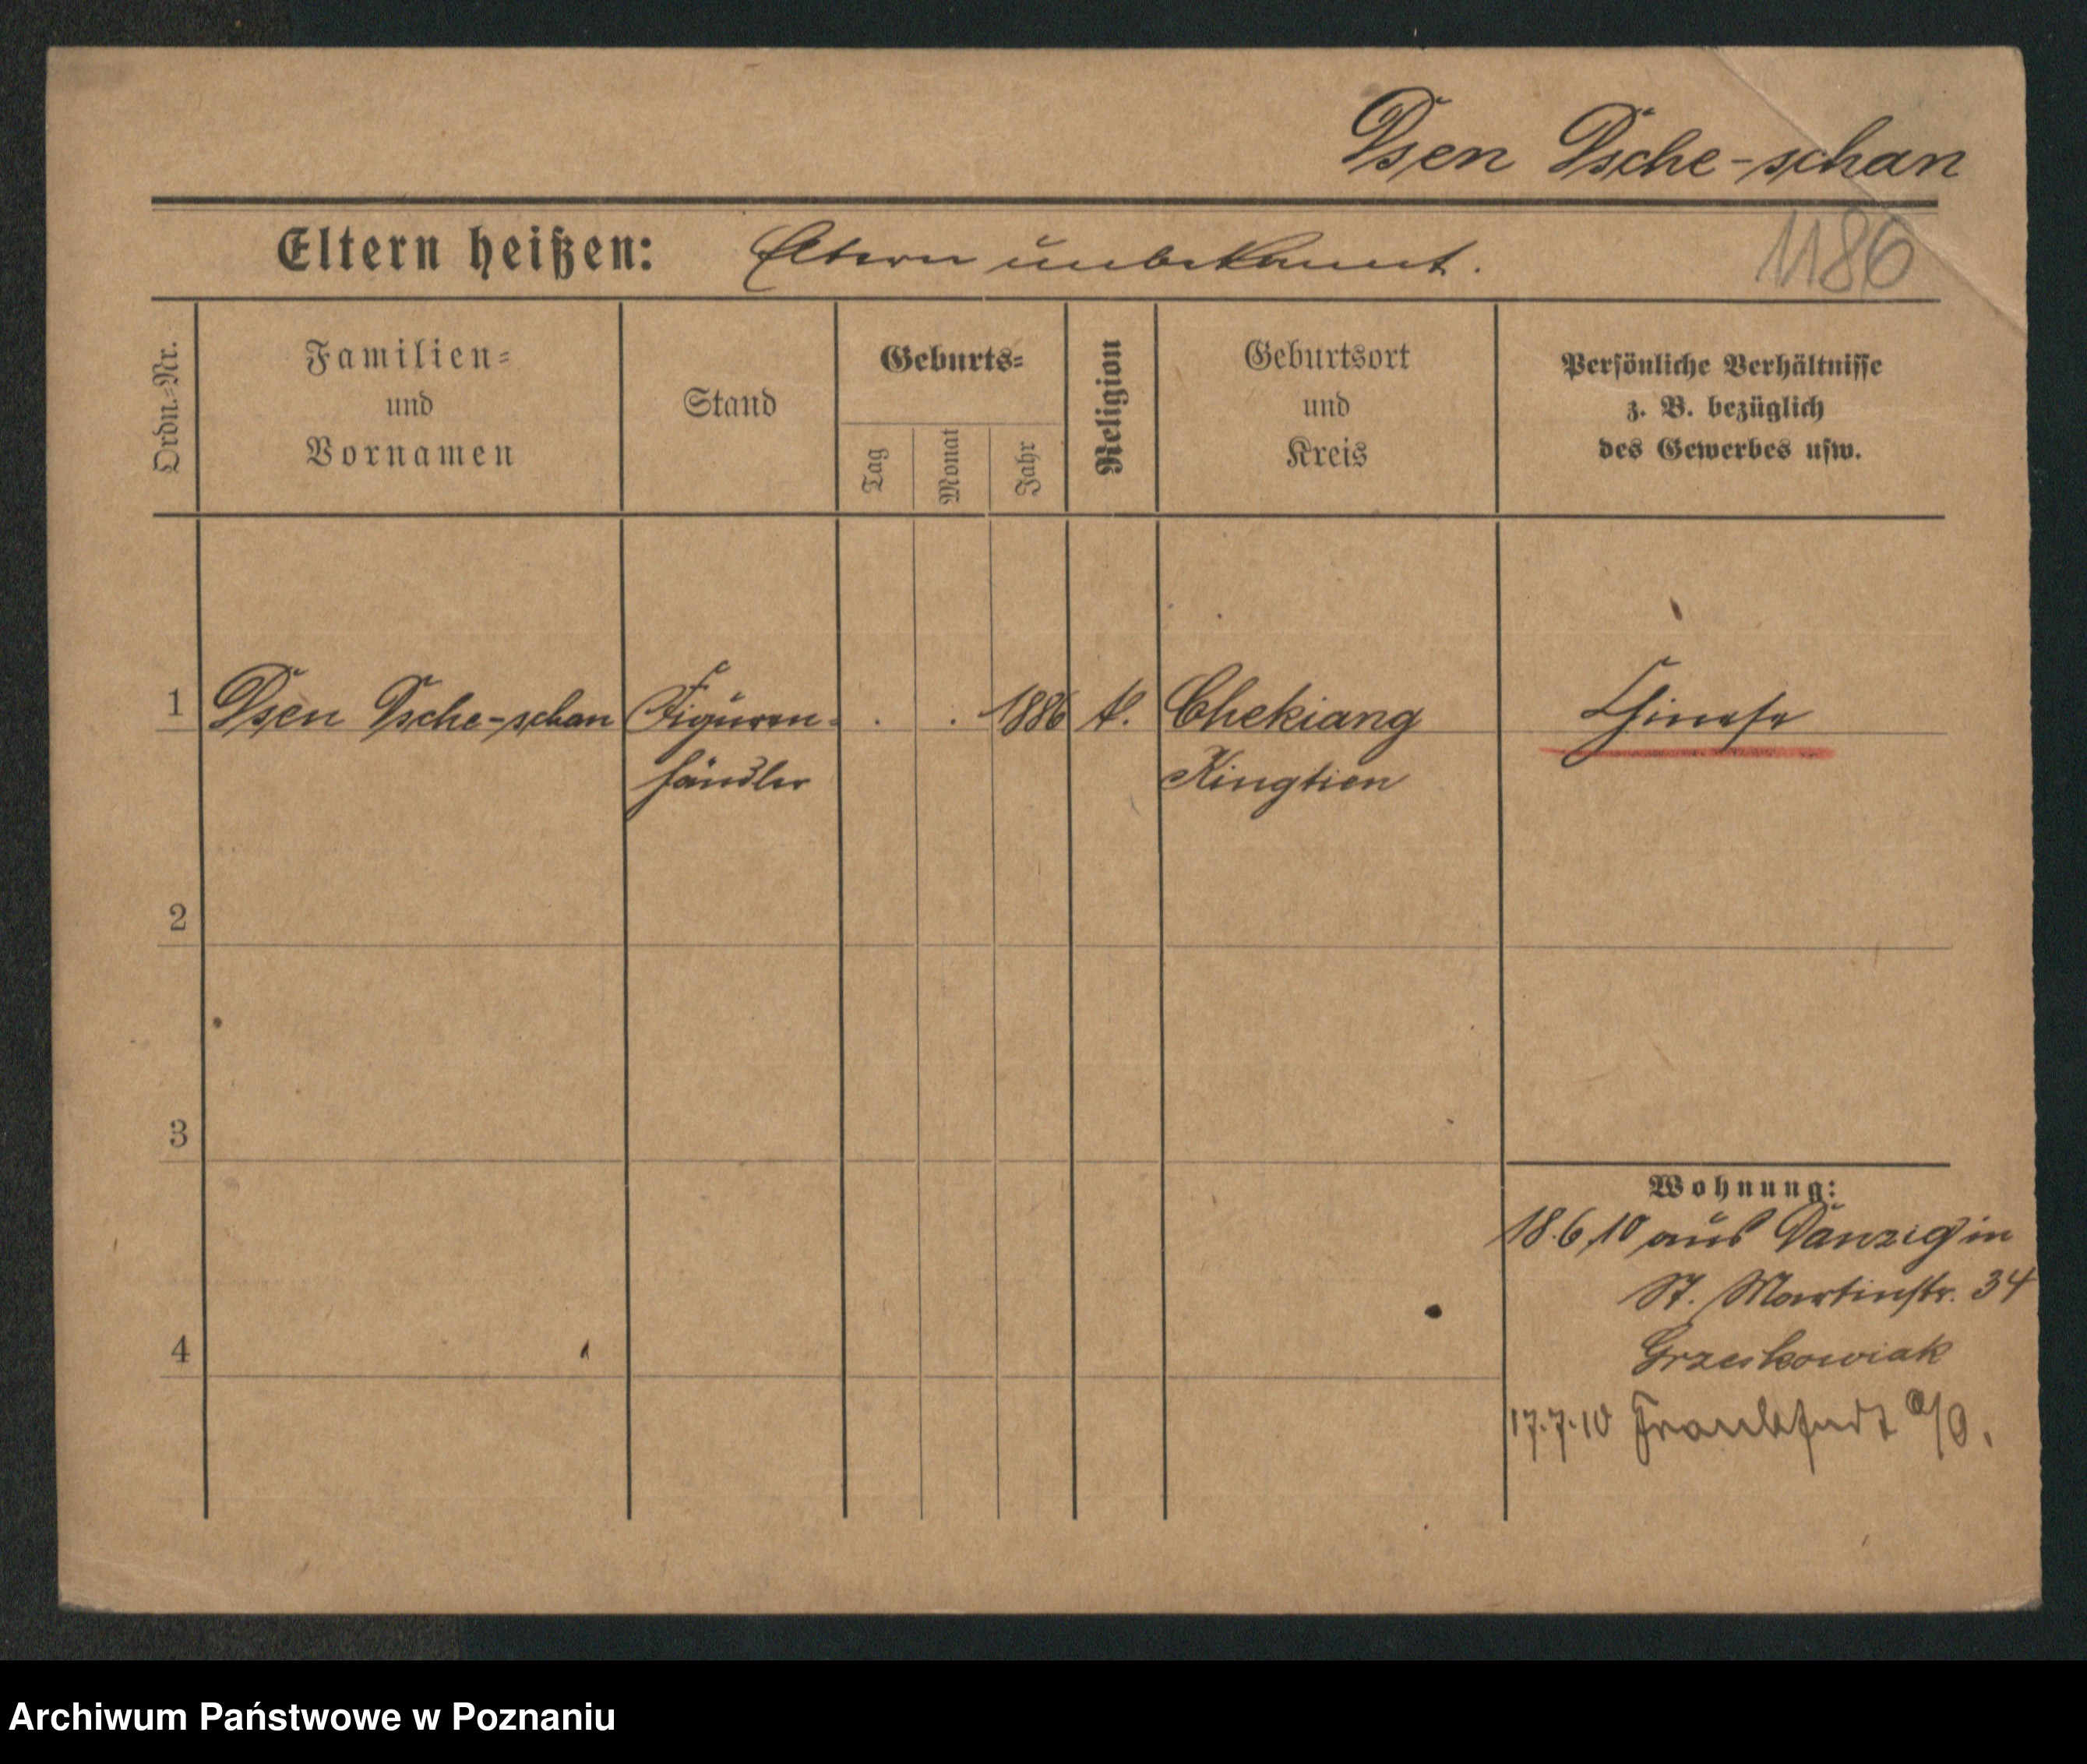 Dsen Dsche-schan
Eltern heißen: Eltern unbekannt.
1186
Ordn.-Nr.
Familien-
und
Vornamen
Stand
Geburts-
Tag
Monat
Jahr
Religion
Geburtsort
und
Kreis
Persönliche Verhältnisse
z. B. bezüglich
des Gewerbes usw.
1 Dsen Dsche-schan Figuren- . . 1886 Chekiang Chinese
händler Kingtien
2
3
Wohnung:
18.6.10 aus Danzig in
St. Martinstr. 34
Grzeskowiak
4
17.7.10 Frankfurt a/O.
Archiwum Państwowe w Poznaniu